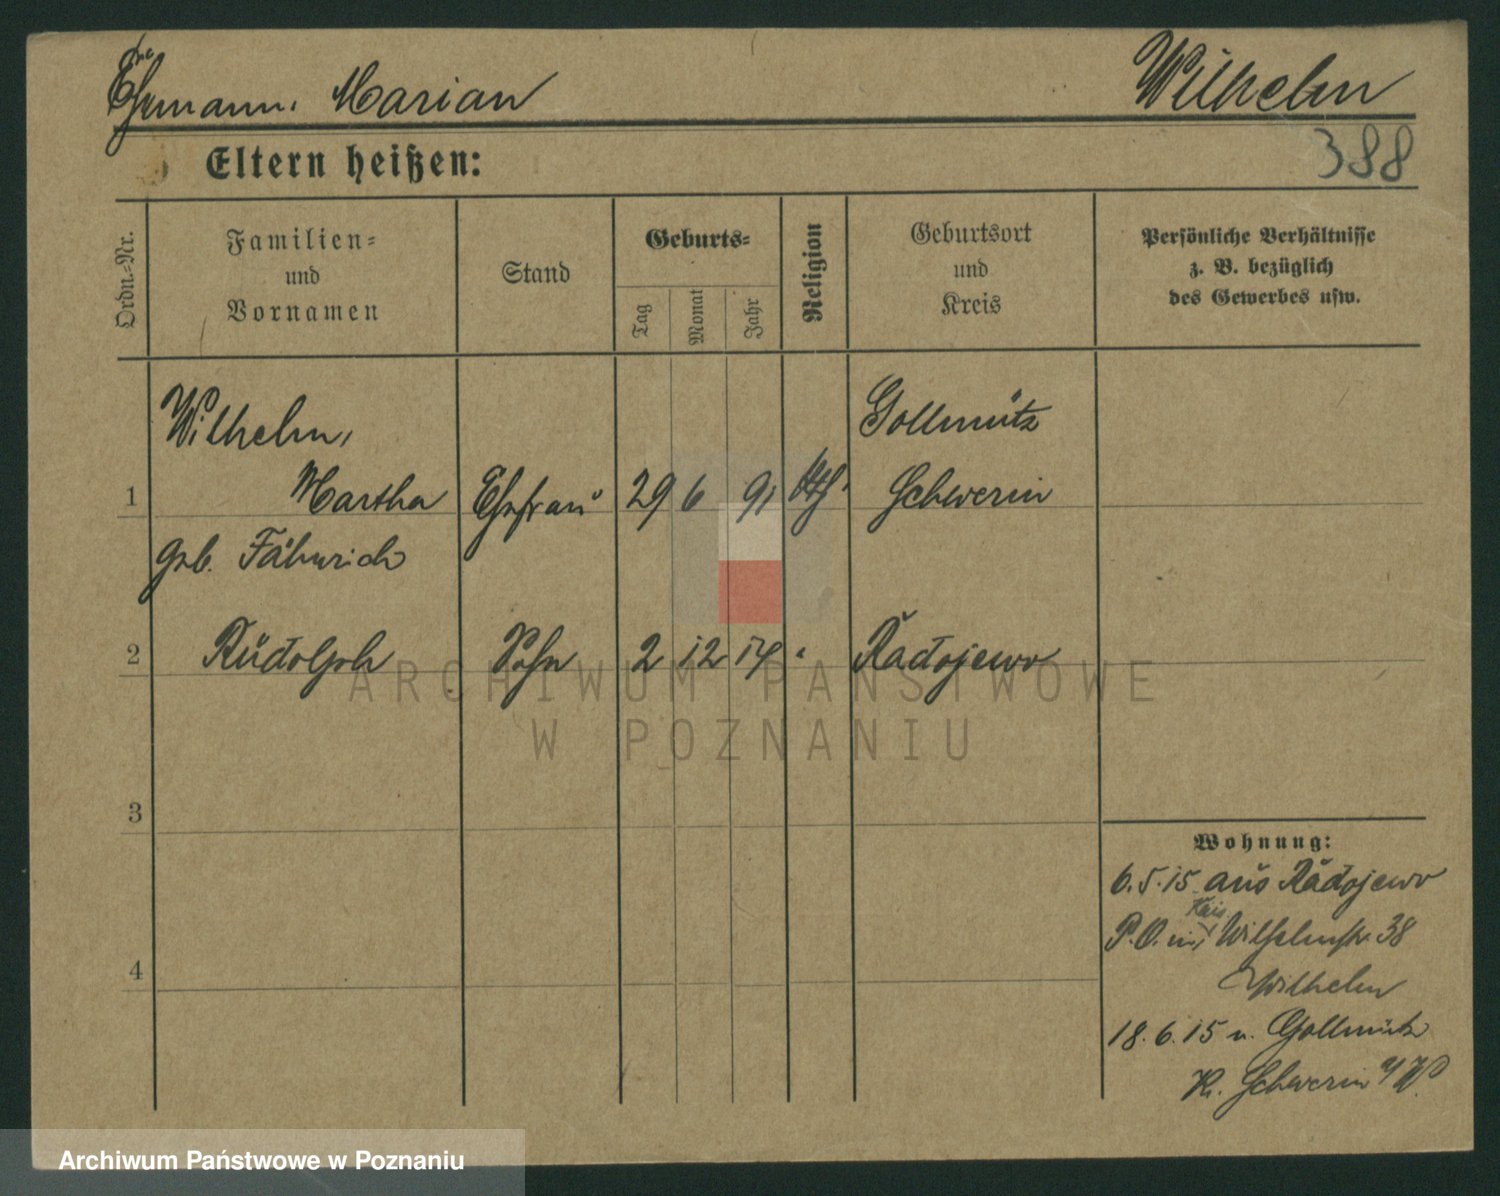 Ehemann, Marian Wilhelm
388
Eltern heißen:
Ordn.-Nr.
Familien-
und
Vornamen
Stand
Geburts-
Tag
Monat
Jahr
Religion
Geburtsort
und
Kreis
Persönliche Verhältnisse
z. B. bezüglich
des Gewerbes usw.
Wilhelm, Gollmütz
1 Martha Ehefrau 29 6 91 kth. Schwerin
geb. Fähnrich
2 Rudolph Sohn 2 12 14 " Radojewo
ARCHIWUM PAŃSTWOWE
W POZNANIU
3
4
Wohnung:
6.5.15 aus Radojewo
Kais.
P.O. Wilhelmstr. 38
Wilhelm
18.6.15 n. Gollmütz
Kr. Schwerin a/W.
Archiwum Państwowe w Poznaniu